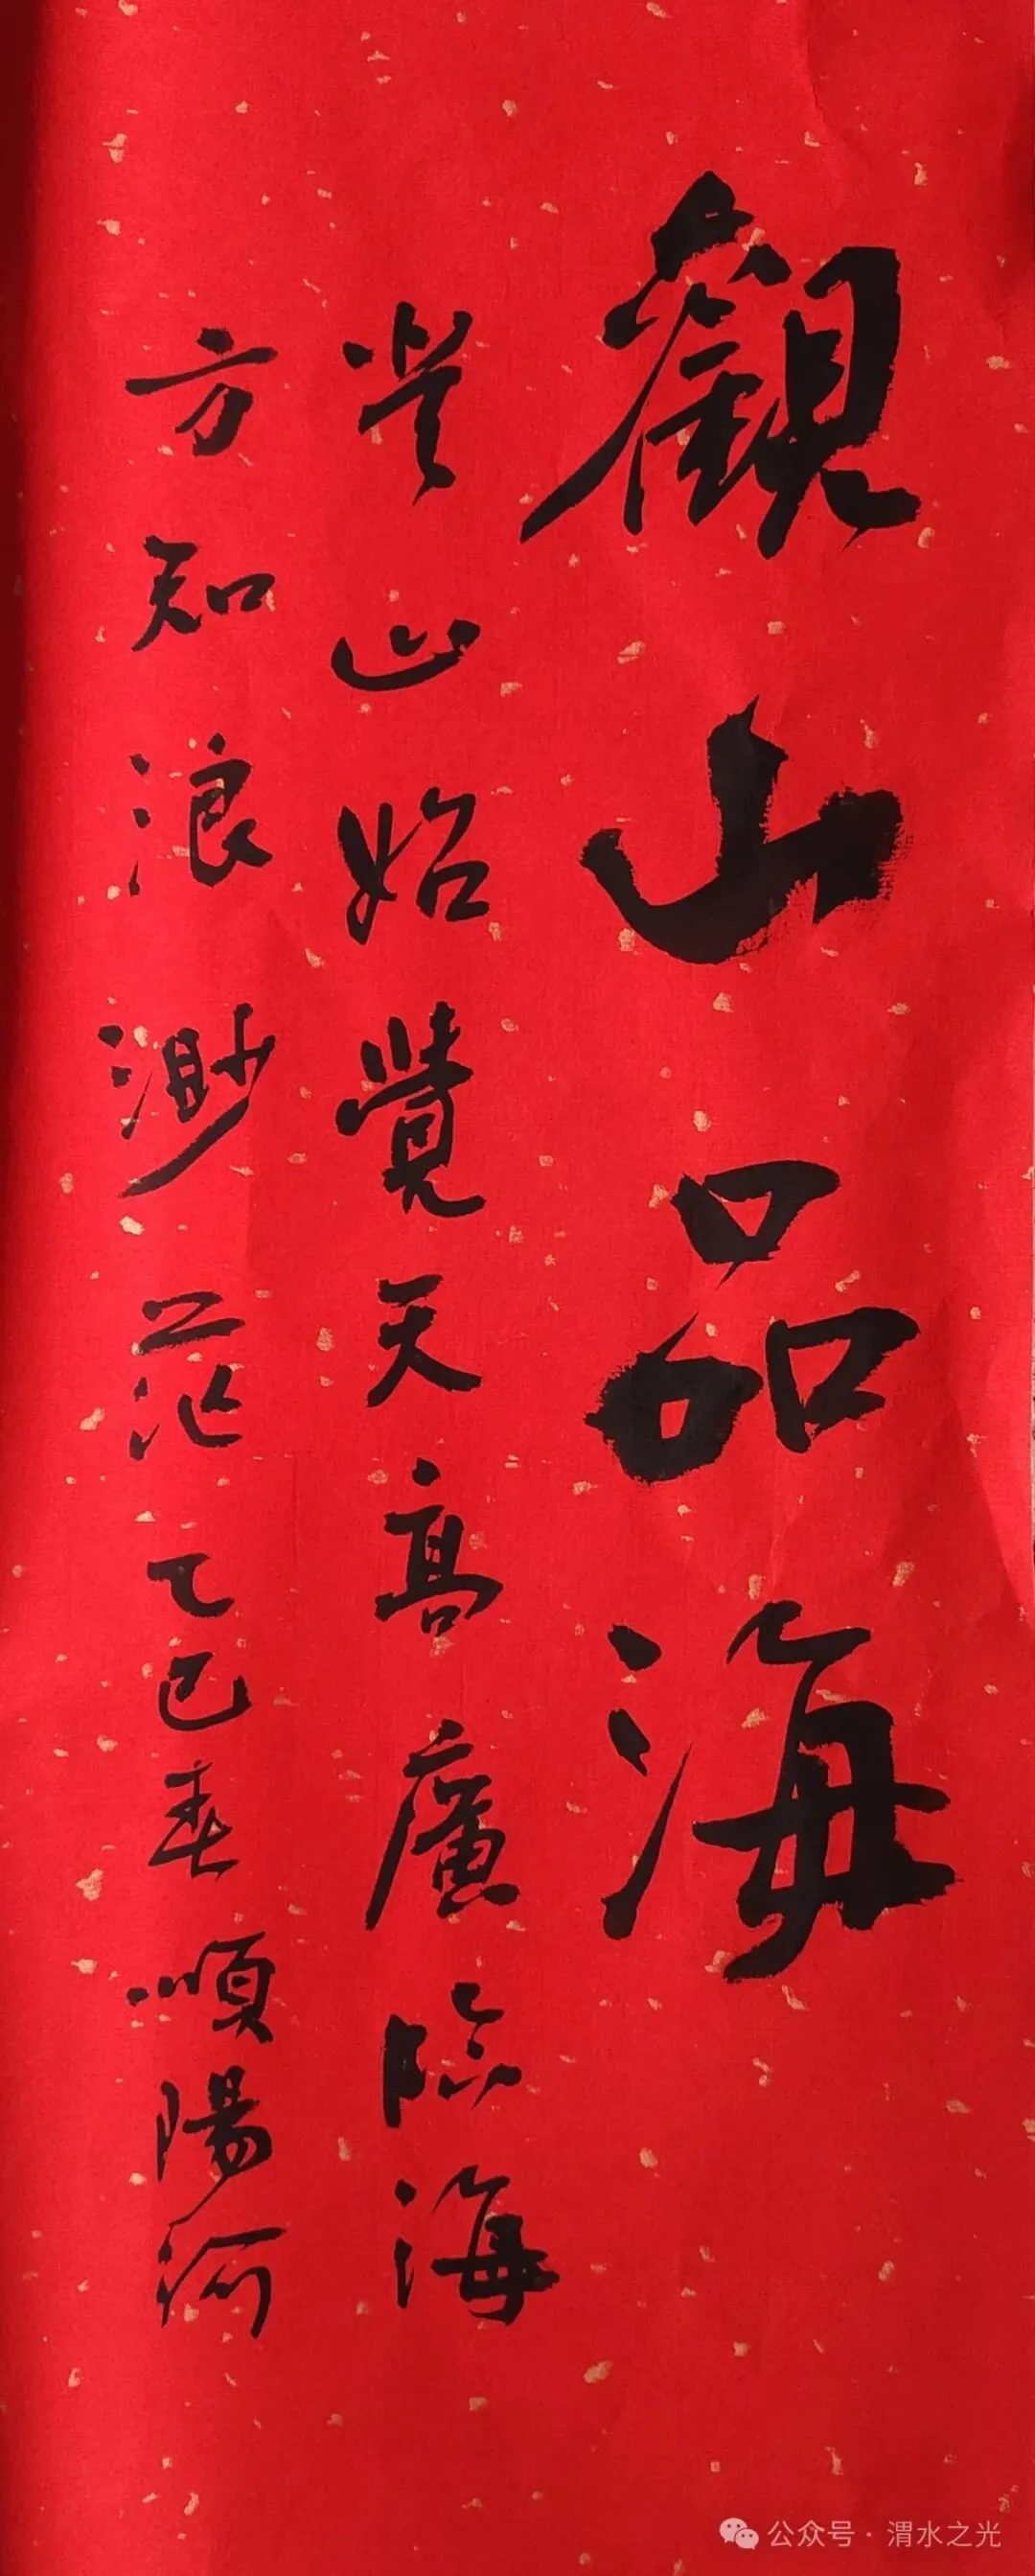 觀山品海
登山始覺天高廣臨海
方知浪渺茫乙巳春順陽河
公众号·渭水之光